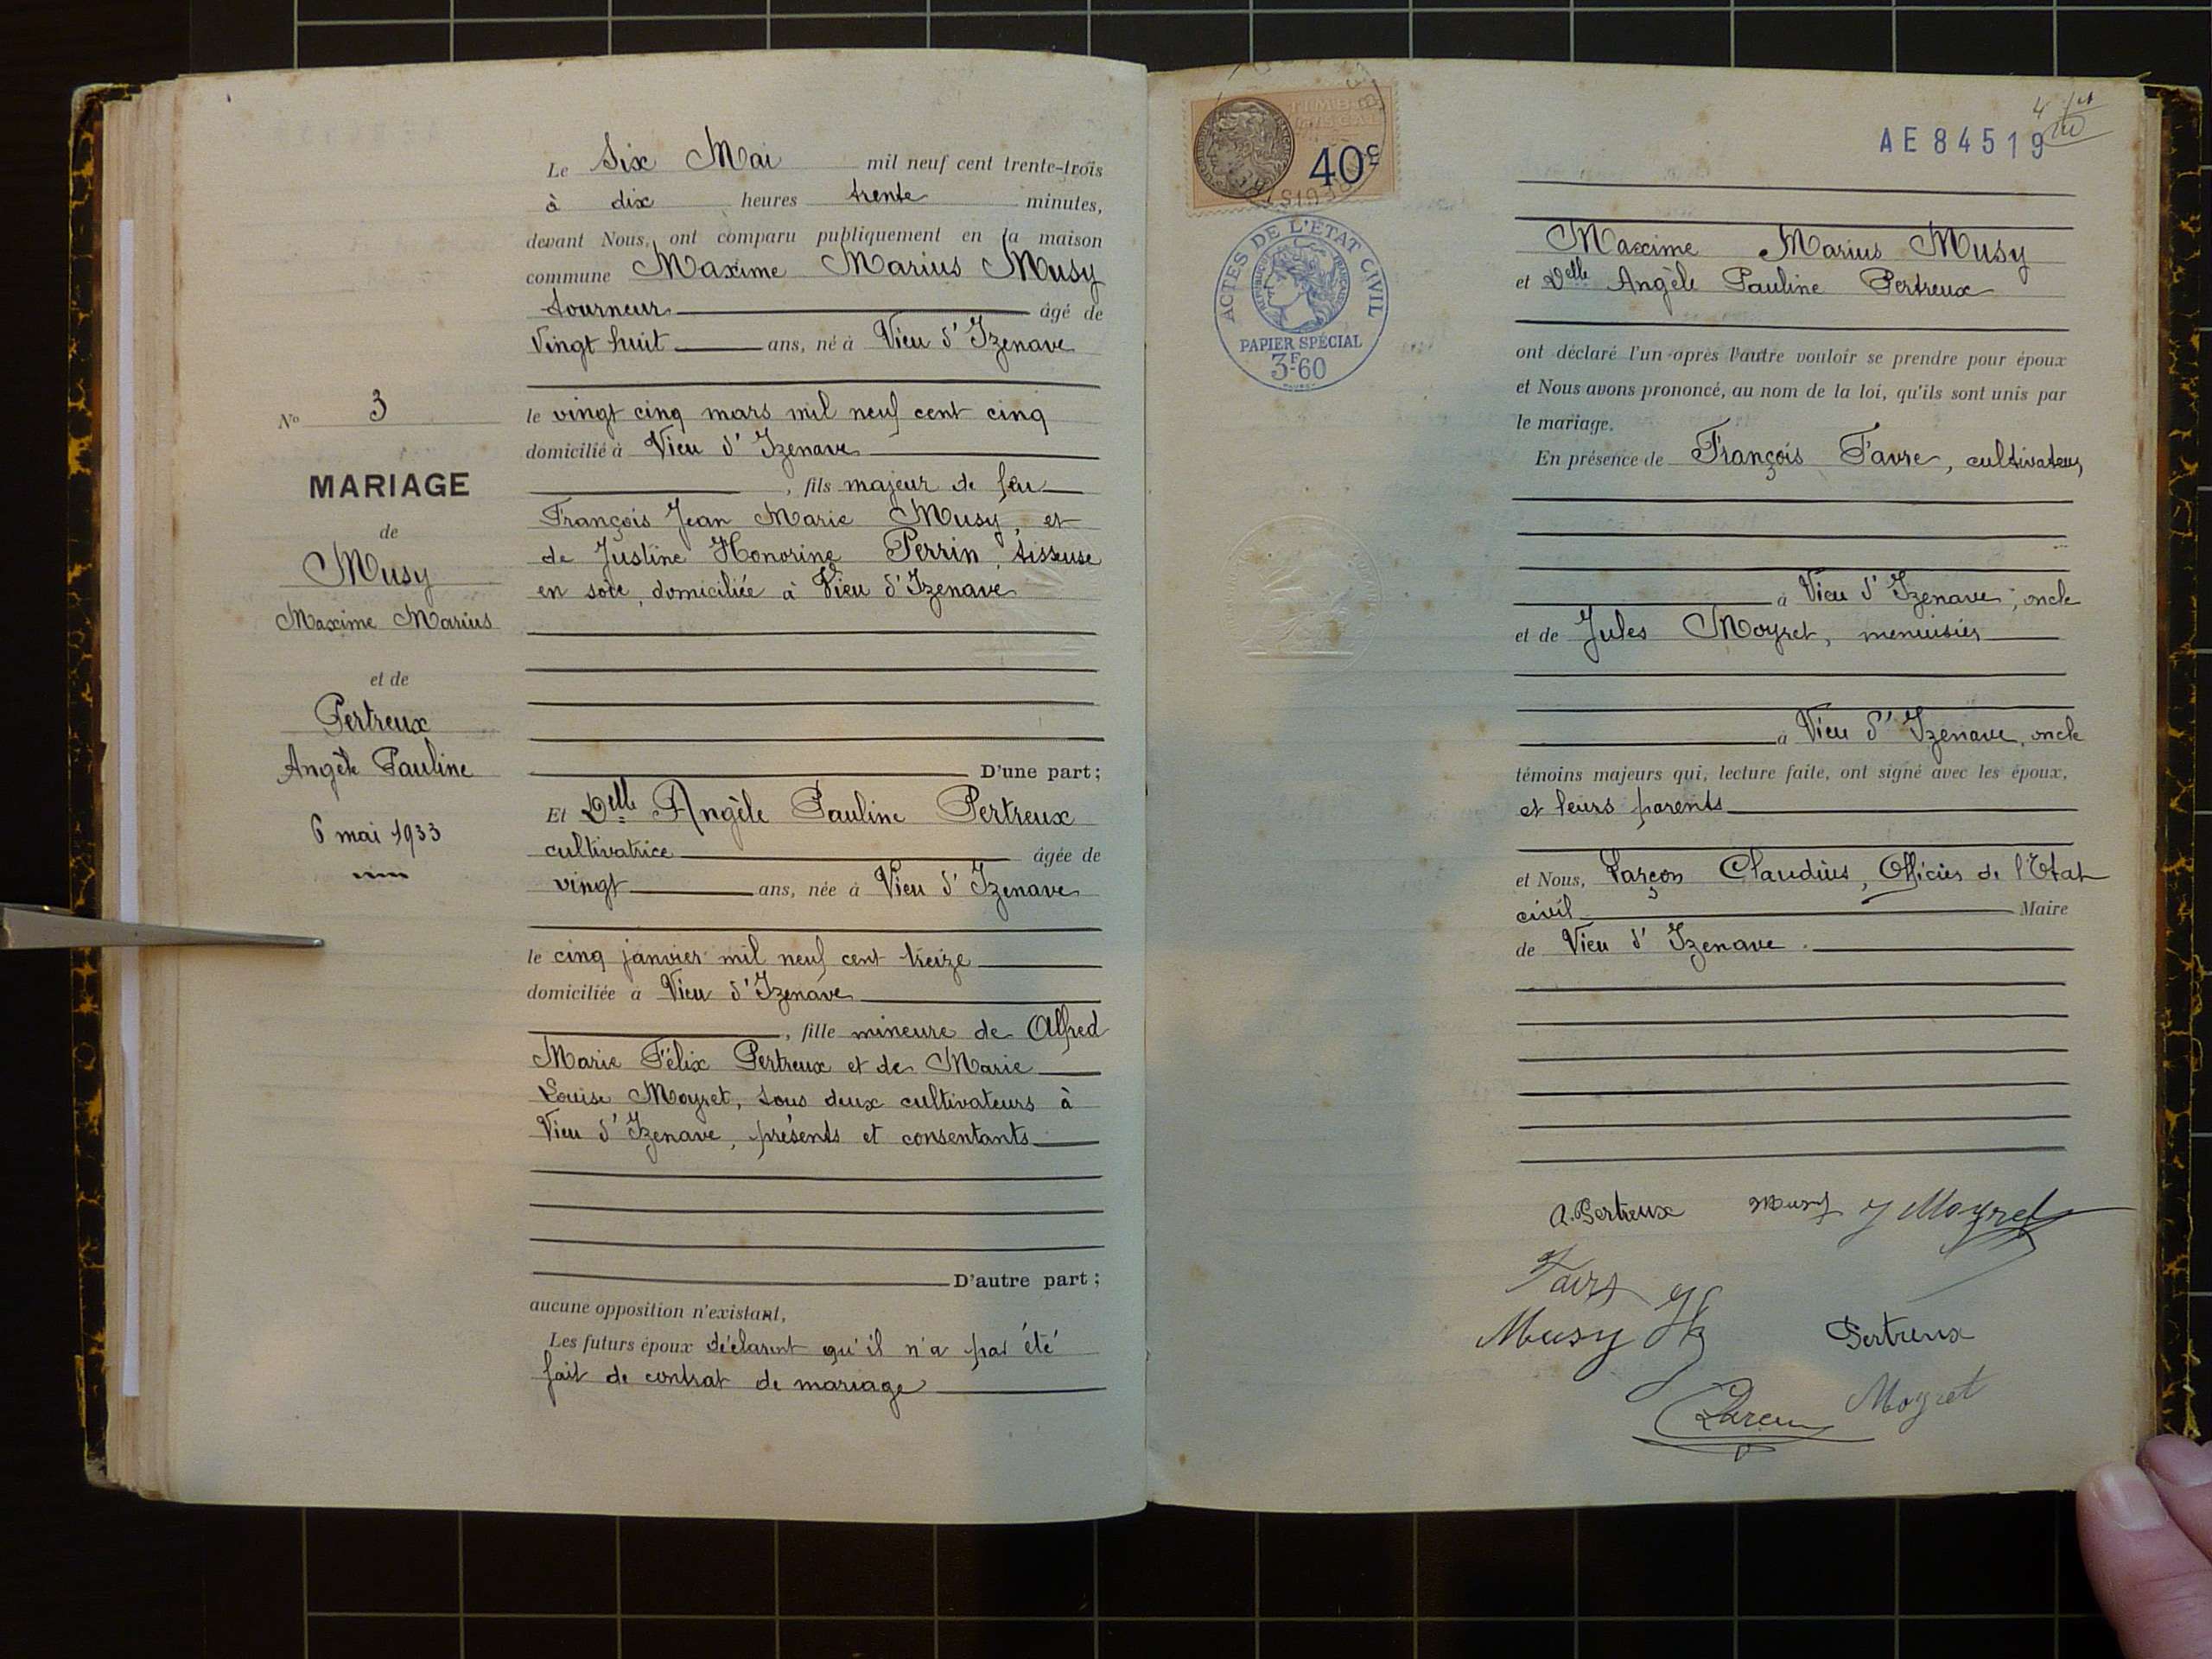 N° 3
MARIAGE
de
Musy
Maxime Marius
et de
Pertreux
Angèle Pauline
6 mai 1933
Le Six Mai mil neuf cent trente-trois
à dix heures trente minutes,
devant Nous, ont comparu publiquement en la maison
commune Maxime Marius Musy
tourneur âgé de
Vingt huit ans, né à Vieu d'Izenave
le vingt cinq mars mil neuf cent cinq
domicilié à Vieu d'Izenave
, fils majeur de feu
François Jean Marie Musy, et
de Justine Honorine Perrin, tisseuse
en soie, domiciliée à Vieu d'Izenave
D'une part;
Et Delle Angèle Pauline Pertreux
cultivatrice âgée de
vingt ans, née à Vieu d'Izenave
le cinq janvier mil neuf cent treize
domiciliée à Vieu d'Izenave
, fille mineure de Alfred
Marie Félix Pertreux et de Marie
Louise Moyret, tous deux cultivateurs à
Vieu d'Izenave, présents et consentants
D'autre part;
aucune opposition n'existant,
Les futurs époux déclarent qu'il n'a pas été
fait de contrat de mariage
TIMBRE
FISCAL
40c
ACTES DE L'ÉTAT CIVIL
PAPIER SPÉCIAL
3F60
AE 84519
Maxime Marius Musy
et Delle Angèle Pauline Pertreux
ont déclaré l'un après l'autre vouloir se prendre pour époux
et Nous avons prononcé, au nom de la loi, qu'ils sont unis par
le mariage.
En présence de François Favre, cultivateur,
à Vieu d'Izenave, oncle
et de Jules Moyret, menuisier
à Vieu d'Izenave, oncle
témoins majeurs qui, lecture faite, ont signé avec les époux,
et leurs parents
et Nous, Larçon Claudius, Officier de l'Etat
civil Maire
de Vieu d'Izenave.
A. Pertreux Musy J Moyret
Musy
Pertreux
Moyret